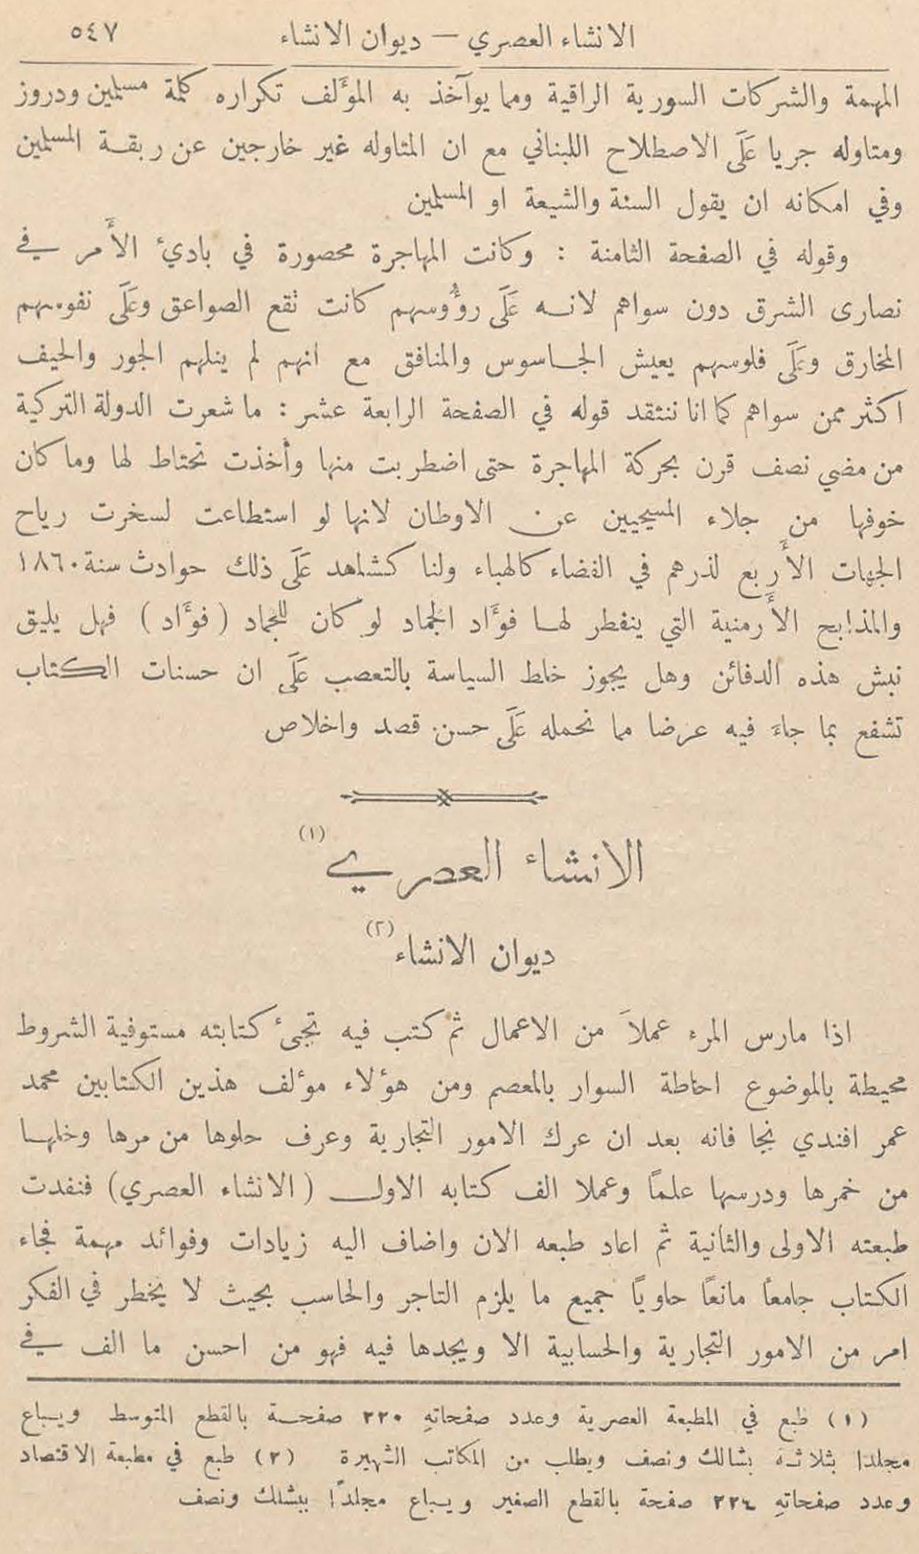 الانشاء العصري — ديوان الانشاء ٥٤٧
المهمة والشركات السورية الراقية ومما يوآخذ به المؤلف تكراره كلمة مسلمين ودروز
ومتاوله جريا عَلَى الاصطلاح اللبناني مع ان المتاوله غير خارجين عن ربقة المسلمين
وفي امكانه ان يقول السنة والشيعة او المسلمين
وقوله في الصفحة الثامنة : وكانت المهاجرة محصورة في بادئ الأمر في
نصارى الشرق دون سواهم لانه عَلَى رؤُوسهم كانت تقع الصواعق وعَلَى نفوسهم
المخارق وعَلَى فلوسهم يعيش الجاسوس والمنافق مع انهم لم ينلهم الجور والحيف
اكثر ممن سواهم كما انا ننتقد قوله في الصفحة الرابعة عشر : ما شعرت الدولة التركية
من مضي نصف قرن بحركة المهاجرة حتى اضطربت منها وأخذت تحتاط لها وما كان
خوفها من جلاء المسيحيين عن الاوطان لانها لو استطاعت لسخرت رياح
الجهات الأربع لذرهم في الفضاء كالهباء ولنا كشاهد عَلَى ذلك حوادث سنة ١٨٦٠
والمذابح الأرمنية التي ينفطر لها فؤاد الجماد لو كان للجماد ( فؤاد ) فهل يليق
نبش هذه الدفائن وهل يجوز خلط السياسة بالتعصب عَلَى ان حسنات الكتاب
تشفع بما جاءَ فيه عرضا مما نحمله عَلَى حسن قصد واخلاص
الانشاء العصري (١)
ديوان الانشاء (٢)
اذا مارس المرء عملاَ من الاعمال ثم كتب فيه تجئ كتابته مستوفية الشروط
محيطة بالموضوع احاطة السوار بالمعصم ومن هؤلاء مؤلف هذين الكتابين محمد
عمر افندي نجا فانه بعد ان عرك الامور التجارية وعرف حلوها من مرها وخلها
من خمرها ودرسها علماً وعملا الف كتابه الاول ( الانشاء العصري ) فنفدت
طبعته الاولى والثانية ثم اعاد طبعه الان واضاف اليه زيادات وفوائد مهمة فجاء
الكتاب جامعاً مانعاً حاوياً جميع ما يلزم التاجر والحاسب بحيث لا يخطر في الفكر
امر من الامور التجارية والحسابية الا ويجدها فيه فهو من احسن ما الف في
(١) طبع في المطبعة العصرية وعدد صفحاتهِ ٢٢٠ صفحة بالقطع المتوسط ويباع
مجلدا بثلاثة بشالك ونصف ويطلب من المكاتب الشهيرة (٢) طبع في مطبعة الاقتصاد
وعدد صفحاتهِ ٢٢٤ صفحة بالقطع الصغير ويباع مجلداً ببشلك ونصف